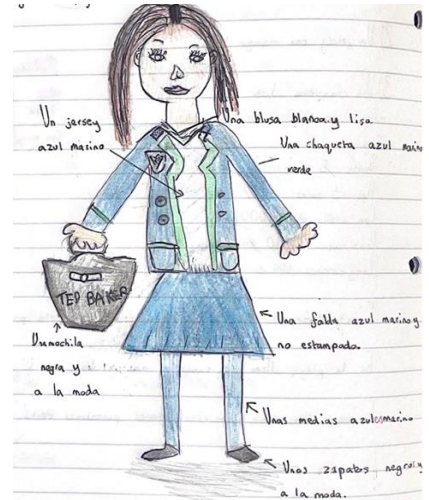 Un jersey
azul marino
Una blusa blanca y lisa
Una chaqueta azul marino
verde
TED BAKER
Un mochila
negra y
a la moda
Una falda azul marino y
no estampado.
Unas medias azules marino
Unos zapatos negros y
a la moda.